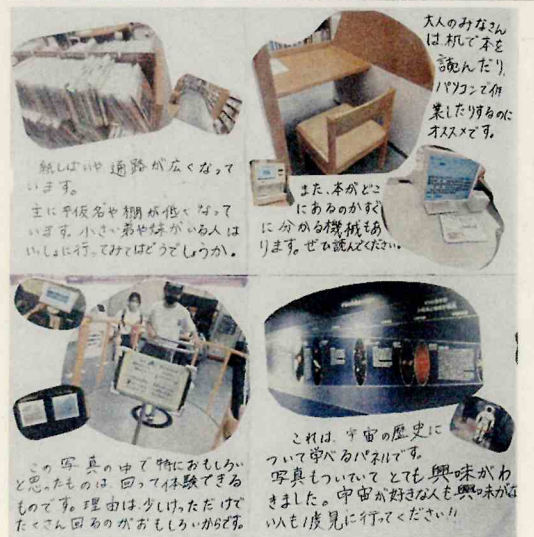 紙しばいや通路が広くなって
います。
主に平仮名や棚が低くなって
います。小さい弟や妹がいる人は
いっしょに行ってみてはどうでしょうか。
大人のみなさん
は机で本を
読んだり、
パソコンで作
業したりするのに
オススメです。
また、本がどこ
にあるのかすぐ
に分かる機械もあ
ります。ぜひ読んでください。
この写真の中で特におもしろい
と思ったものは、回って体験できる
ものです。理由は、少しけっただけで
たくさん回るのがおもしろいからです。
これは、宇宙の歴史に
ついて学べるパネルです。
写真もついていてとても興味がわ
きました。宇宙が好きな人も、興味がな
い人も1度見に行ってください!!